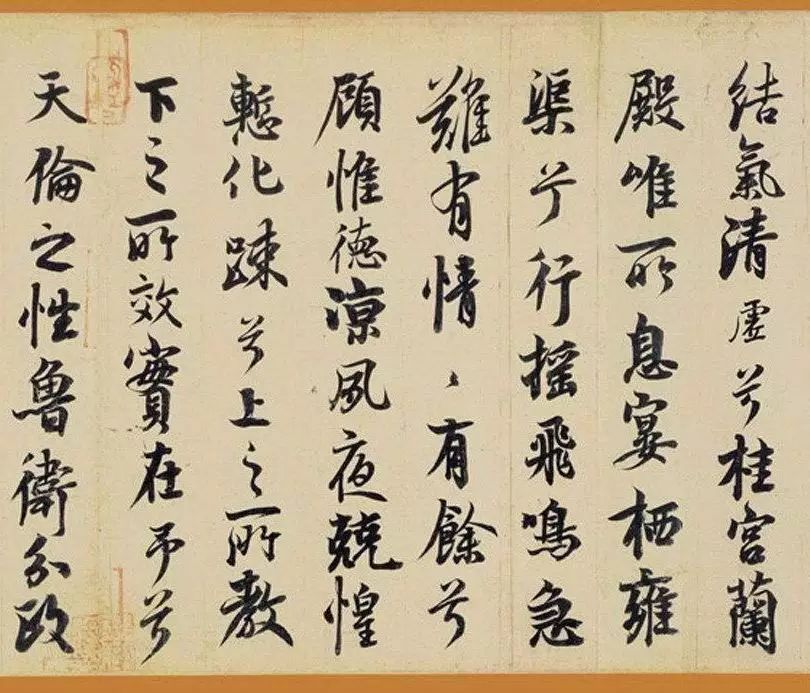 結氣清虛兮桂宮蘭
殿唯所息宴栖雍
渠兮行搖飛鳴急
難有情〻有餘兮
顧惟德涼夙夜兢惶
慙化踈兮上之所教
下之所效實在予兮
天倫之性魯衛分政